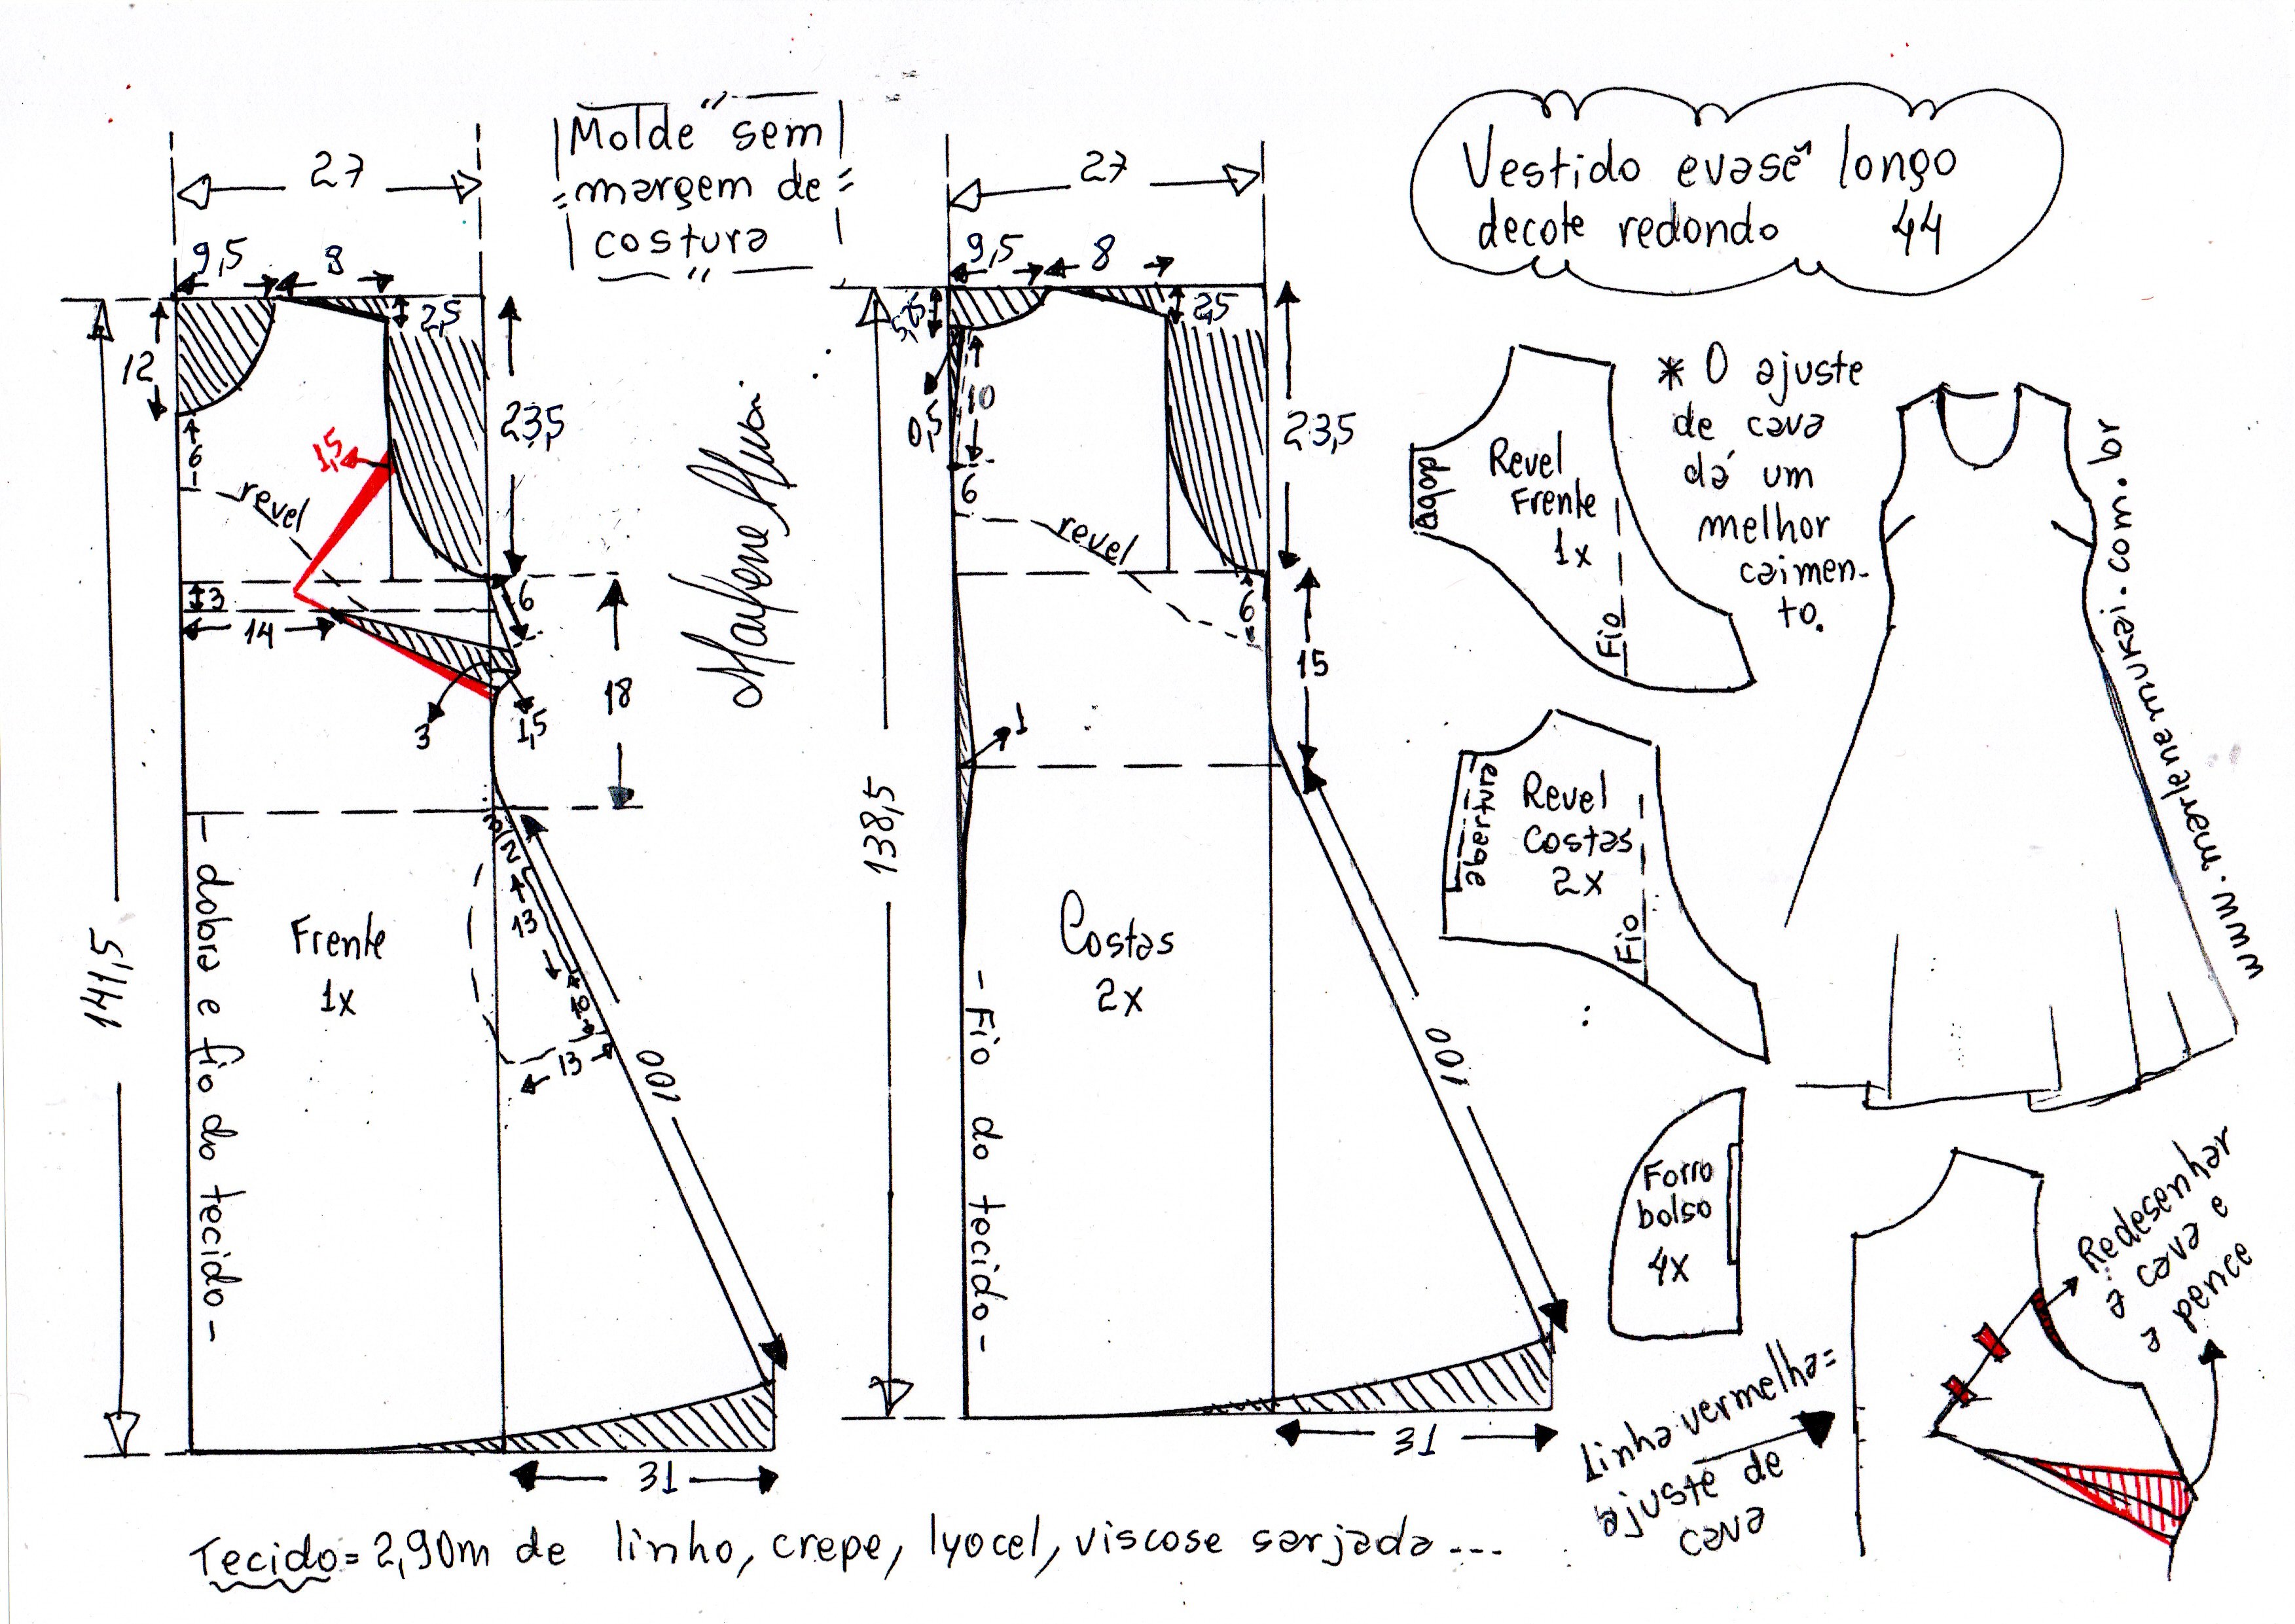 Molde sem
margem de
costura
Vestido evasê longo
decote redondo 44
27
9,5 8
2,5
12
6
revel
1,5
23,5
3
14
6
18
3
1,5
141,5
- dobra e fio do tecido -
Frente
1x
2
13
10
13
100
31
27
9,5 8
2,5
0,5
10
6
revel
23,5
6
15
1
138,5
Costas
2x
- Fio do tecido -
100
31
dobra
Revel
Frente
1x
Fio
* O ajuste
de cava
dá um
melhor
caimen-
to.
abertura
Revel
Costas
2x
Fio
www.marlenemukai.com.br
Forro
bolso
4x
Redesenhar
a cava e
a pence
Linha vermelha=
ajuste de
cava
Tecido= 2,90m de linho, crepe, lyocel, viscose sarjada...